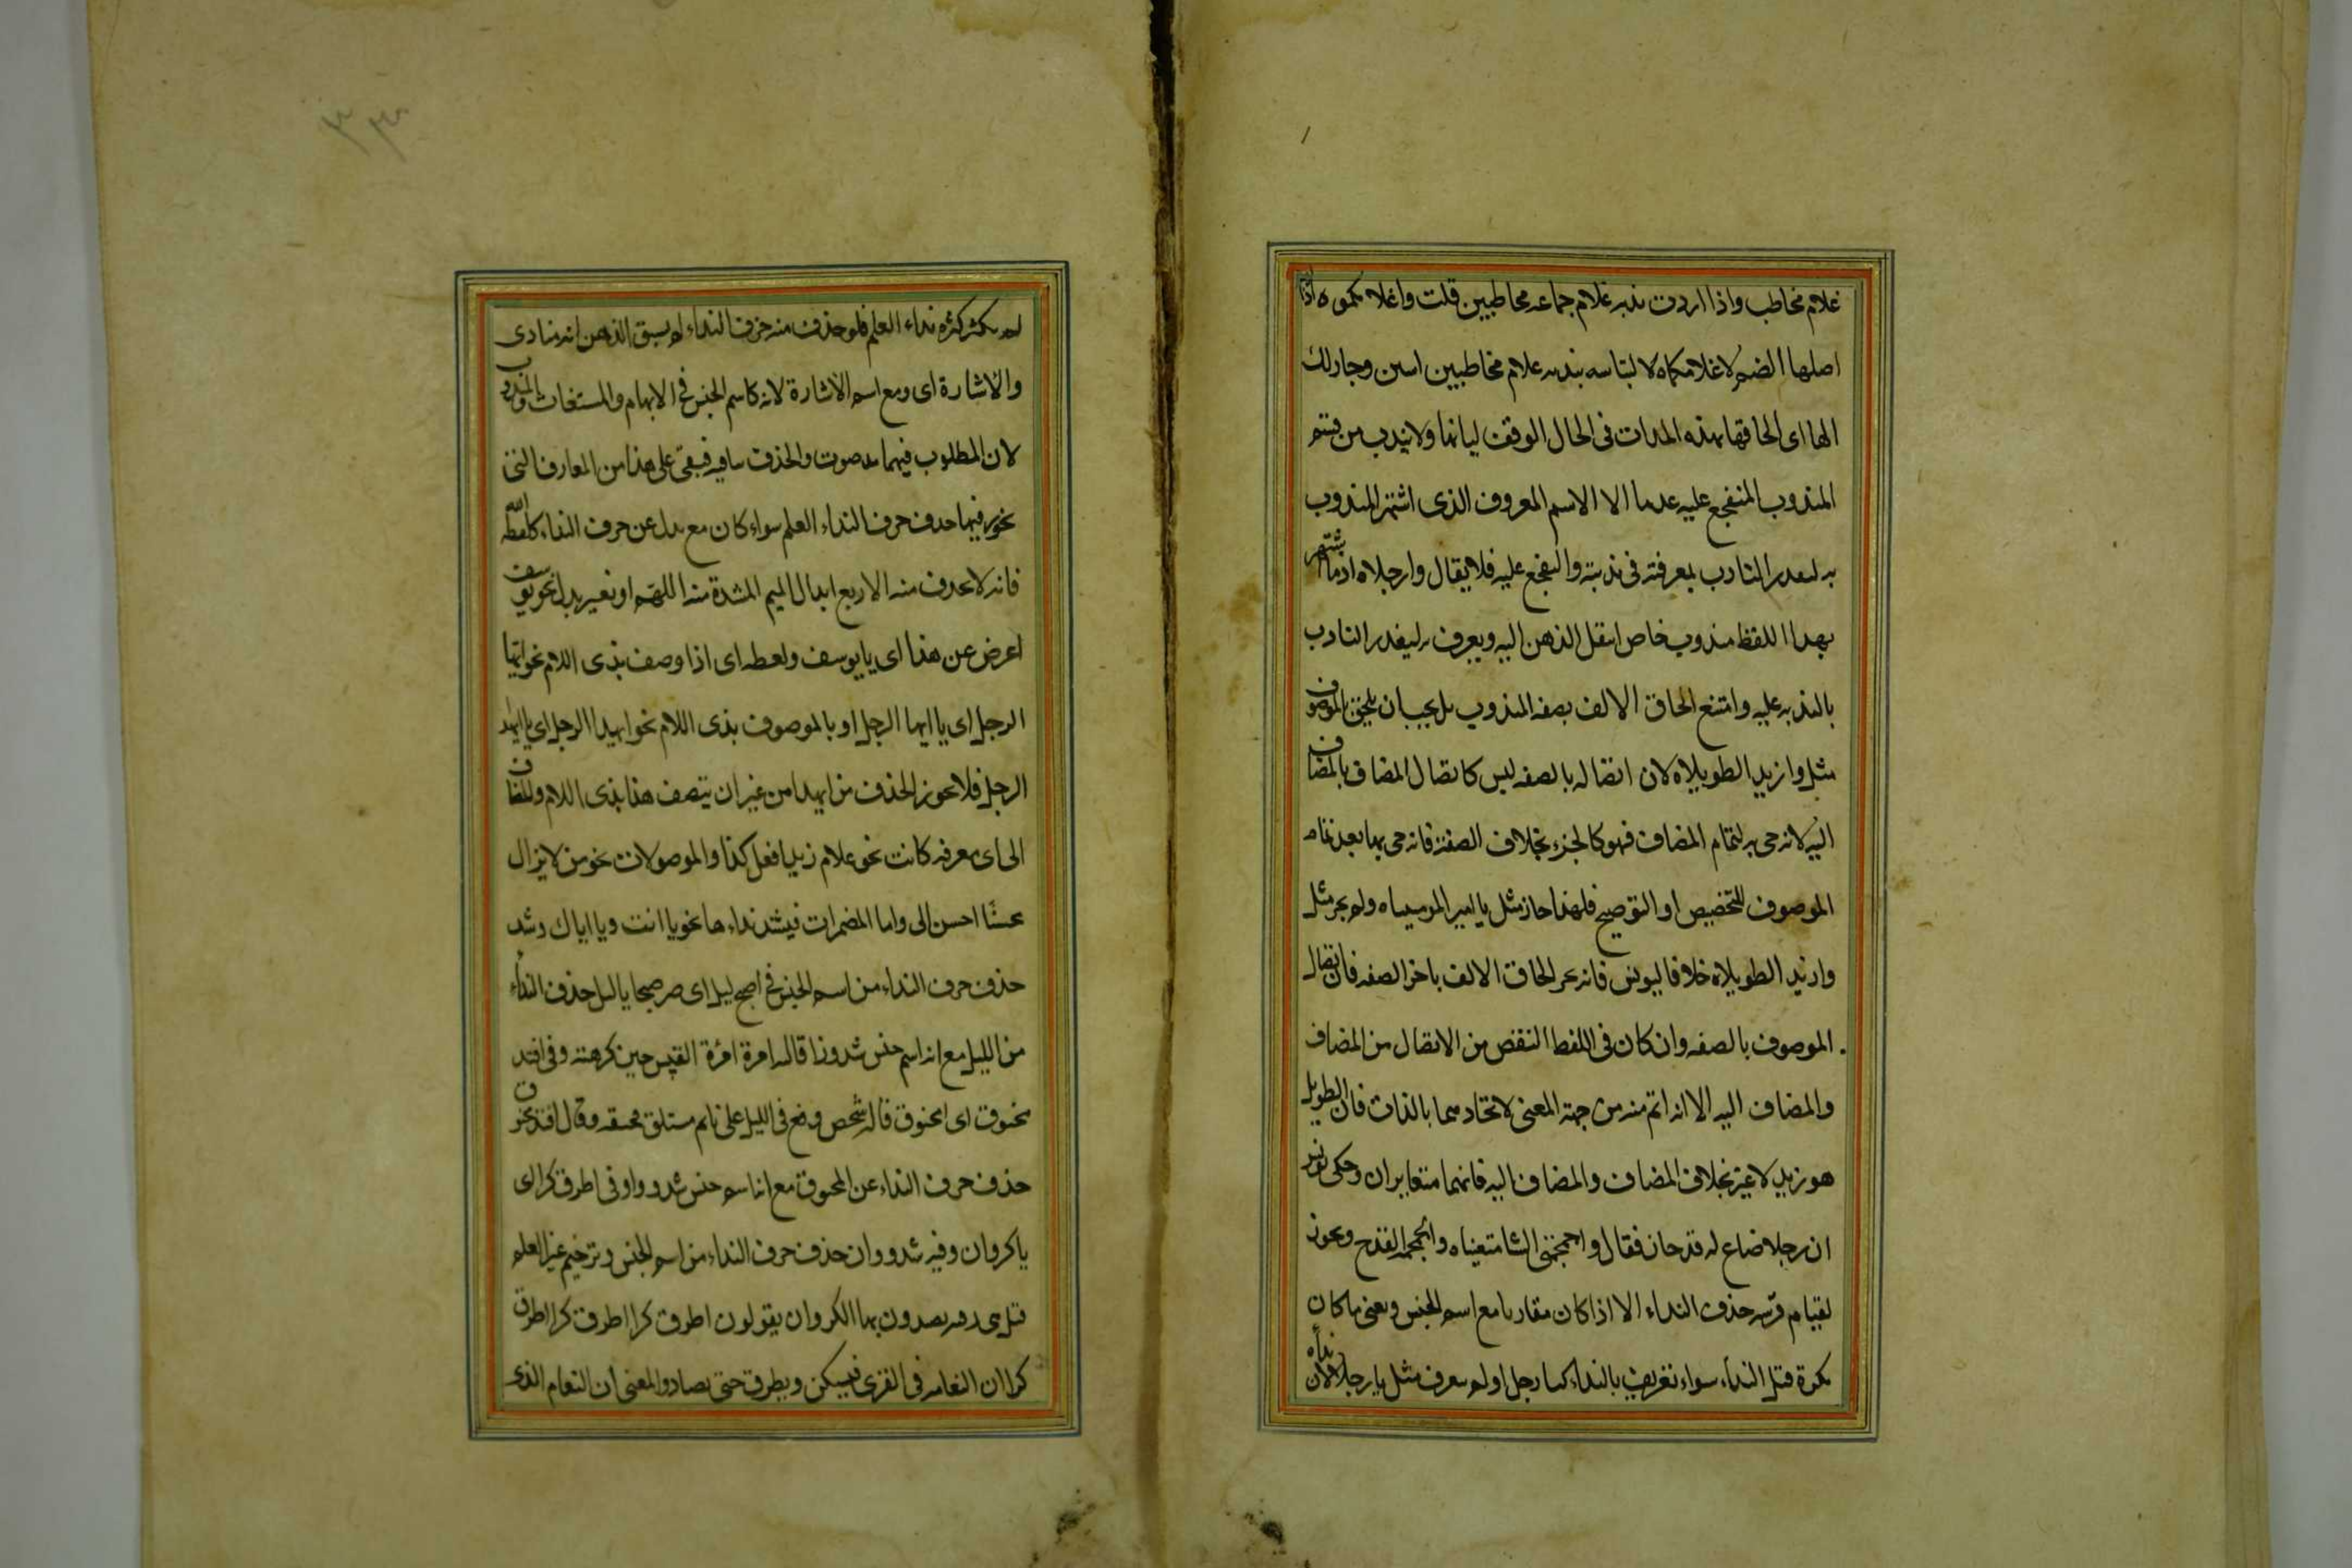 غلام مخاطب واذا اردت ندبه غلام جماعه مخاطبين قلت واغلا مكموه اذا
اصلها الضم لا غلامكماه لا لتباسه بندبه غلام مخاطبين اسين وجاز لك
الها اى الحاقها بهذه المدات فى الحال الوقف لبيانها ولا يندب من قسم
المندوب المتفجع عليه عدما الا الاسم المعروف الذى اشتهر المندوب
به ليعذر النادب بمعرفته فى ندبته والتفجع عليه فلا يقال وارجلاه اذ ما اشتهر
بهذا اللفظ مندوب خاص انتقل الذهن اليه ويعرف به ليعذر النادب
بالندبه عليه وامتنع الحاق الالف بصفه المندوب بل يجب ان يلحق بالموصوف
مثل وازيد الطويلاه لان اتصاله بالصفه ليس كاتصال المضاف بالمضاف
اليه لانه جى به لتمام المضاف فهو كالجزء بخلاف الصفة فانه جى بها بعد تمام
الموصوف للتخصيص او التوضيح فلهذا جاز مثل يا امير المومنيناه ولم يجز مثل
وازيد الطويلاه خلافا ليونس فانه يجوز الحاق الالف باخر الصفه فان اتصال
الموصوف بالصفه وان كان فى اللفظ انقص من الاتصال من المضاف
والمضاف اليه الا انه اتم منه من جهة المعنى لاتحادهما بالذات فان الطويل
هو زيد لا غير بخلاف المضاف والمضاف اليه فانهما متغايران وحكى يونس
ان رجلا ضاع له قدحان فقال واجمجمتى الشاميتيناه والجمجمة القدح ويجوز
لقيام قرينه حذف النداء الا اذا كان مقارنا مع اسم الجنس ويعنى ما كان
نكرة قبل النداء سواء تعريف بالنداء كيا رجل او لم يعرف مثل يا رجلا لان نداءه
لم يكثر كثره نداء العلم فلو حذف منه حرف النداء لم يسبق الذهن انه منادى
والاشارة اى ومع اسم الاشارة لانه كاسم الجنس فى الابهام والمستغاث والمندوب
لان المطلوب فيهما مد صوت والحذف ينافيه فبقى على هذا من المعارف التى
يجوز فيها حذف حرف النداء العلم سواء كان مع بدل عن حرف النداء كلفظه الله
فانه لا يحذف منه الا مع ابدال الميم المشدة منه اللهم او بغير بدل نحو يوسف
اعرض عن هذا اى يا يوسف ولفظه اى اذا وصف بذى اللام نحو ايها
الرجل اى يا ايها الرجل او بالموصوف بذى اللام نحو ايهذا الرجل اى يا ايهذا
الرجل فلا يجوز الحذف من ايهذا من غير ان يتصف هذا بذى اللام والمضاف
الى اى معرفه كانت نحو غلام زيد افعل كذا والموصولات نحو من لا يزال
محسنا احسن الى واما المضمرات فيشذ نداءها نحو يا انت ويا اياك وشذ
حذف حرف النداء من اسم الجنس فى اصبح ليل اى صر صبحا يا ليل حذف النداء
من الليل مع انه اسم جنس شذوذا قاله امرة امرة القيس حين كرهته وفى افتد
مخنوق اى المخنوق قاله شخص وقع فى الليل على نائم مستلق يخنقه وقال افتد مخنوق
حذف حرف النداء عن المخنوق مع انه اسم جنس شذوذا وفى اطرق كرا اى
يا كروان وفيه شذوذان حذف حرف النداء من اسم الجنس وترخيم غير العلم
قيل هى رقيه يصيدون بها الكروان يقولون اطرق كرا اطرق كرا اطرق
كرا ان النعامه فى القرى فيسكن ويطرق حتى يصاد والمعنى ان النعام الذى
٣٣